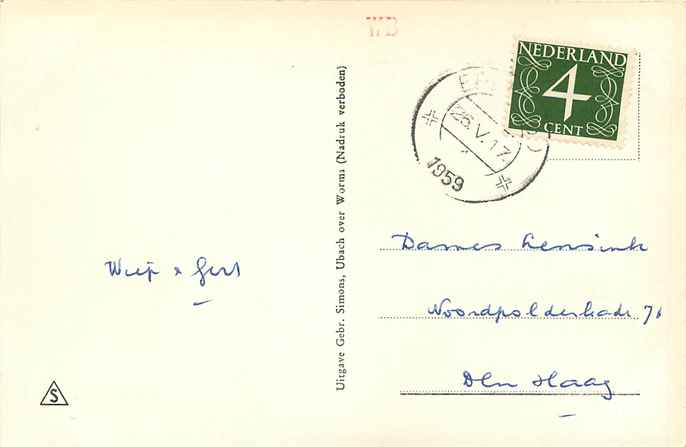 WB
NEDERLAND
4
CENT
26.V.17.
1959
Uitgave Gebr. Simons, Ubach over Worms (Nadruk verboden)
Dames Lensink
Wiep & Gert
Noordpolderkade 71
Den Haag
S